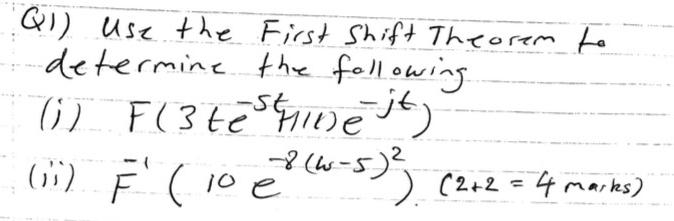 Q1) Use the First Shift Theorem to
determine the following
(i) F(3te^-5t H(t)e^-jt)
(ii) F^-1 (10e^-8(w-5)^2). (2+2 = 4 marks)